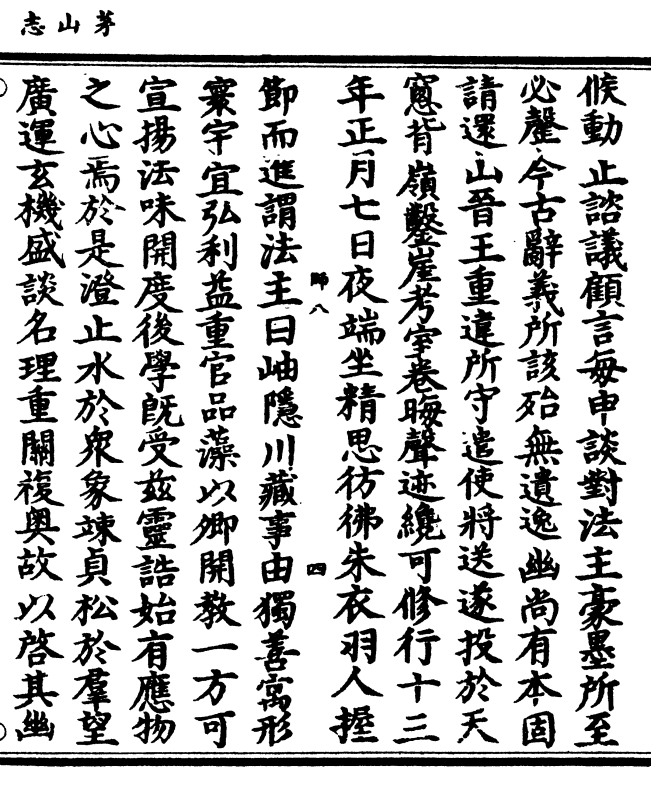 茅山志
候動止諮議顧言每申談對法主豪墨所至
必罄今古辭義所該殆無遺逸幽尚有本固
請還山晉王重違所守遣使將送遂投於天
窻背嶺鑿崖考室卷晦聲迹纔可修行十三
年正月七日夜端坐精思彷彿朱衣羽人握
歸八
四
節而進謂法主曰岫隱川藏事由獨善寓形
寰宇宜弘利益重官品藻以卿開教一方可
宣揚法味開度後學旣受茲靈誥始有應物
之心焉於是澄止水於衆象竦貞松於羣望
廣運玄機盛談名理重關複奥故以啓其幽